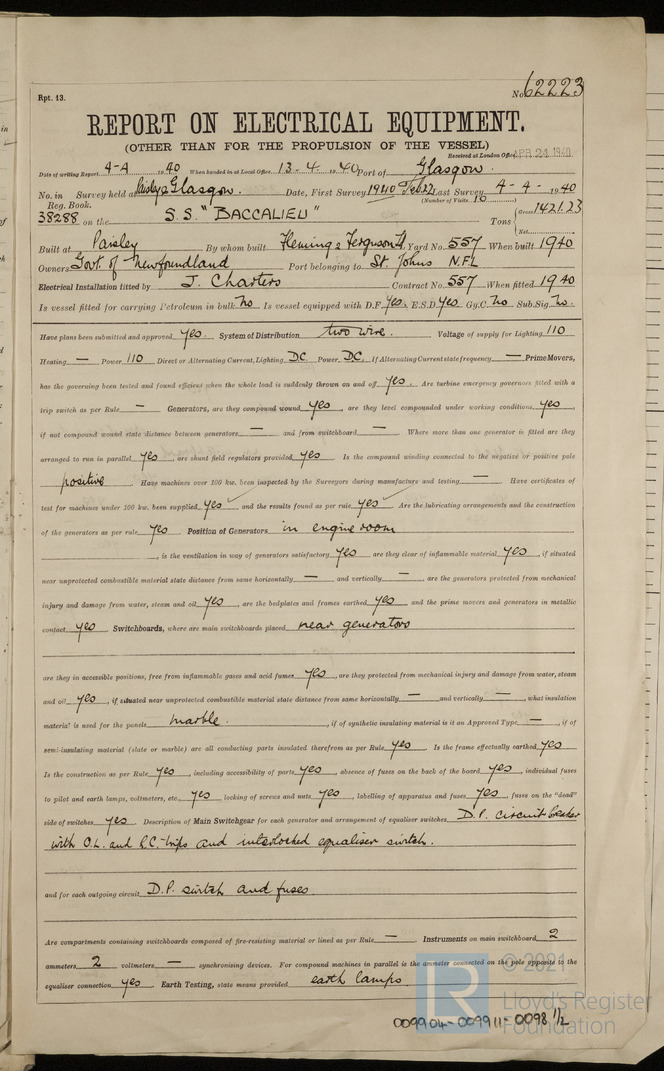 Rpt. 13.
No. 62223
REPORT ON ELECTRICAL EQUIPMENT.
(OTHER THAN FOR THE PROPULSION OF THE VESSEL)
Received at London Office APR 24 1940
Date of writing Report 4-4 1940 When handed in at Local Office 13.4.1940 Port of Glasgow.
No. in Survey held at Paisley & Glasgow. Date, First Survey Last Survey 4-4-1940
Reg. Book. (Number of Visits 10)
38288 on the S.S. "BACCALIEU" Tons { Gross 1421.23
Net
Built at Paisley By whom built Fleming & Ferguson Ld. Yard No. 557 When built 1940
Owners Govt. of Newfoundland Port belonging to St. Johns N.F.L
Electrical Installation fitted by J. Charters Contract No. 557 When fitted 1940
Is vessel fitted for carrying Petroleum in bulk No Is vessel equipped with D.F. Yes. E.S.D Yes Gy.C. No Sub.Sig. No.
Have plans been submitted and approved Yes. System of Distribution two wire. Voltage of supply for Lighting 110
Heating — Power 110 Direct or Alternating Current, Lighting D.C Power D.C. If Alternating Current state frequency — Prime Movers,
has the governing been tested and found efficient when the whole load is suddenly thrown on and off yes. Are turbine emergency governors fitted with a
trip switch as per Rule — Generators, are they compound wound yes, are they level compounded under working conditions yes,
if not compound wound state distance between generators — and from switchboard — Where more than one generator is fitted are they
arranged to run in parallel yes, are shunt field regulators provided yes. Is the compound winding connected to the negative or positive pole
positive. Have machines over 100 kw. been inspected by the Surveyors during manufacture and testing — Have certificates of
test for machines under 100 kw. been supplied yes and the results found as per rule yes Are the lubricating arrangements and the construction
of the generators as per rule yes Position of Generators in engine room
, is the ventilation in way of generators satisfactory yes are they clear of inflammable material yes, if situated
near unprotected combustible material state distance from same horizontally — and vertically —, are the generators protected from mechanical
injury and damage from water, steam and oil yes, are the bedplates and frames earthed yes and the prime movers and generators in metallic
contact yes Switchboards, where are main switchboards placed near generators
are they in accessible positions, free from inflammable gases and acid fumes yes, are they protected from mechanical injury and damage from water, steam
and oil yes, if situated near unprotected combustible material state distance from same horizontally — and vertically —, what insulation
material is used for the panels marble., if of synthetic insulating material is it an Approved Type —, if of
semi-insulating material (slate or marble) are all conducting parts insulated therefrom as per Rule yes Is the frame effectually earthed yes
Is the construction as per Rule yes, including accessibility of parts yes, absence of fuses on the back of the board yes, individual fuses
to pilot and earth lamps, voltmeters, etc. yes locking of screws and nuts yes, labelling of apparatus and fuses yes, fuses on the "dead"
side of switches yes. Description of Main Switchgear for each generator and arrangement of equaliser switches D.P. circuit breaker
with O.L. and R.C. trips and interlocked equaliser switch.
and for each outgoing circuit D.P. switch and fuses
Are compartments containing switchboards composed of fire-resisting material or lined as per Rule — Instruments on main switchboard 2
ammeters 2 voltmeters — synchronising devices. For compound machines in parallel is the ammeter connected on the pole opposite to the
equaliser connection yes Earth Testing, state means provided earth lamps
© 2021
Lloyd's Register
Foundation
009904-009911-0098 1/2